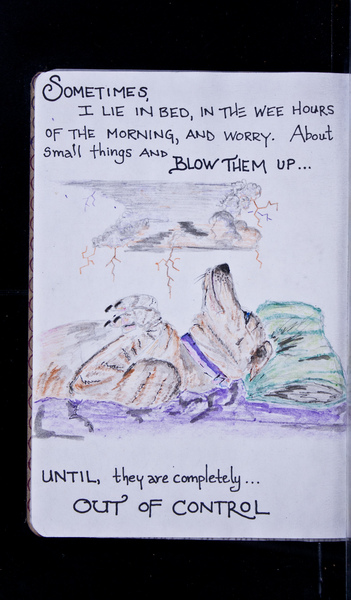 SOMETIMES,
I LIE IN BED, IN THE WEE HOURS
OF THE MORNING, AND WORRY. About
small things AND BLOW THEM UP...
UNTIL, they are completely...
OUT OF CONTROL